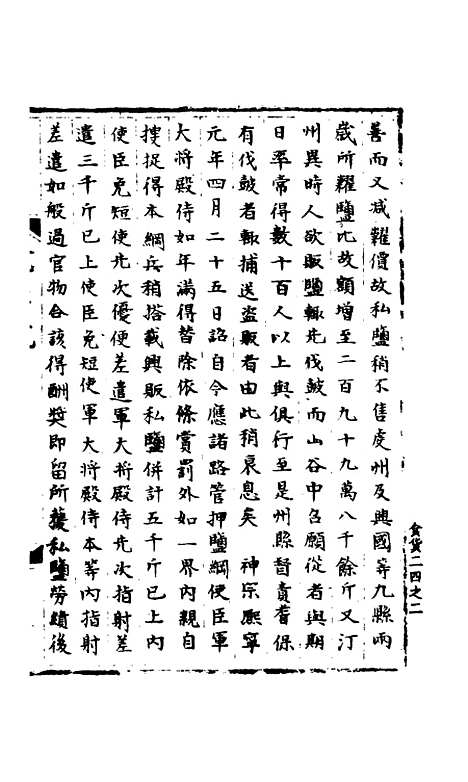 善而又減糶價故私鹽稍不售虔州及興國等九縣兩
歲所糶鹽比故額增至二百九十九萬八千餘斤又汀
州異時人欲販鹽輒先伐鼓而山谷中召願從者與期
日率常得數十百人以上與俱行至是州縣督責耆保
有伐鼓者輒捕送盜販者由此稍衰息矣　神宗熙寧
元年四月二十五日詔自今應諸路管押鹽綱使臣軍
大将殿侍如年滿得替除依條賞罰外如一界內親自
搜捉得本綱兵稍搭載興販私鹽併計五千斤已上內
使臣免短使先次優便差遣軍大将殿侍先次指射差
遣三千斤已上使臣免短使軍大将殿侍本等內指射
差遣如般過官物合該得酬獎即留所獲私鹽勞績後
食貨二四之二